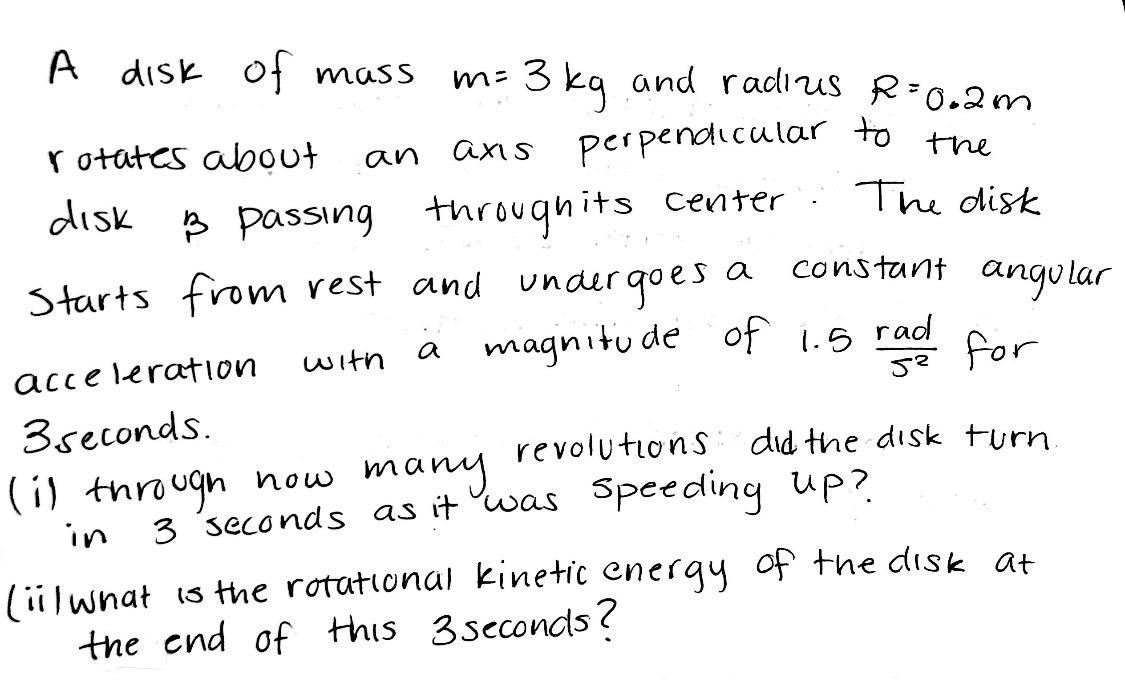 A disk of mass m= 3 kg and radius R=0.2m
rotates about an axis perpendicular to the
disk & passing through its center. The disk
starts from rest and undergoes a constant angular
acceleration with a magnitude of 1.5 rad/s² for
3 seconds.
(i) through how many revolutions did the disk turn
in 3 seconds as it was speeding up?
(ii) what is the rotational kinetic energy of the disk at
the end of this 3 seconds?